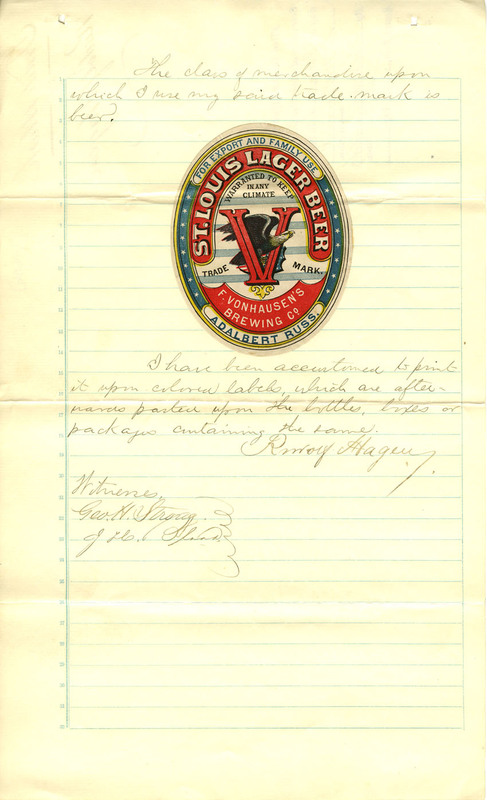 The class of merchandise upon
which I use my said trade-mark is
beer.
FOR EXPORT AND FAMILY USE
ST. LOUIS LAGER BEER
WARRANTED TO KEEP
IN ANY
CLIMATE
V
TRADE MARK.
F. VONHAUSEN'S
BREWING Co
ADALBERT RUSS.
I have been accustomed to print
it upon colored labels, which are after-
wards pasted upon the bottles, boxes or
packages containing the same.
Rudolf Hagen
Witnesses,
Geo. H. Strong
J